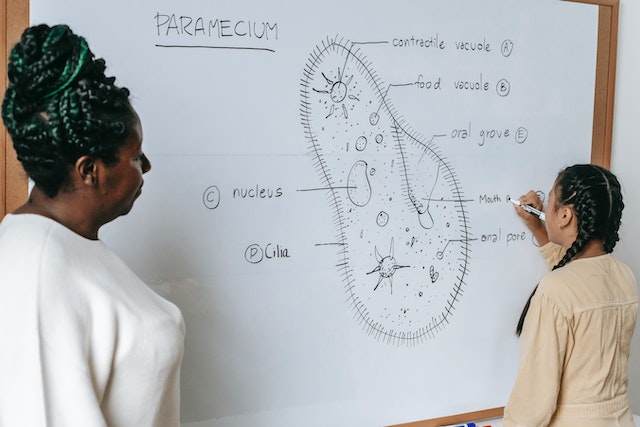 PARAMECIUM
contractile vacuole A
food vacuole B
oral grove E
C nucleus
Mouth
oral pore
D Cilia